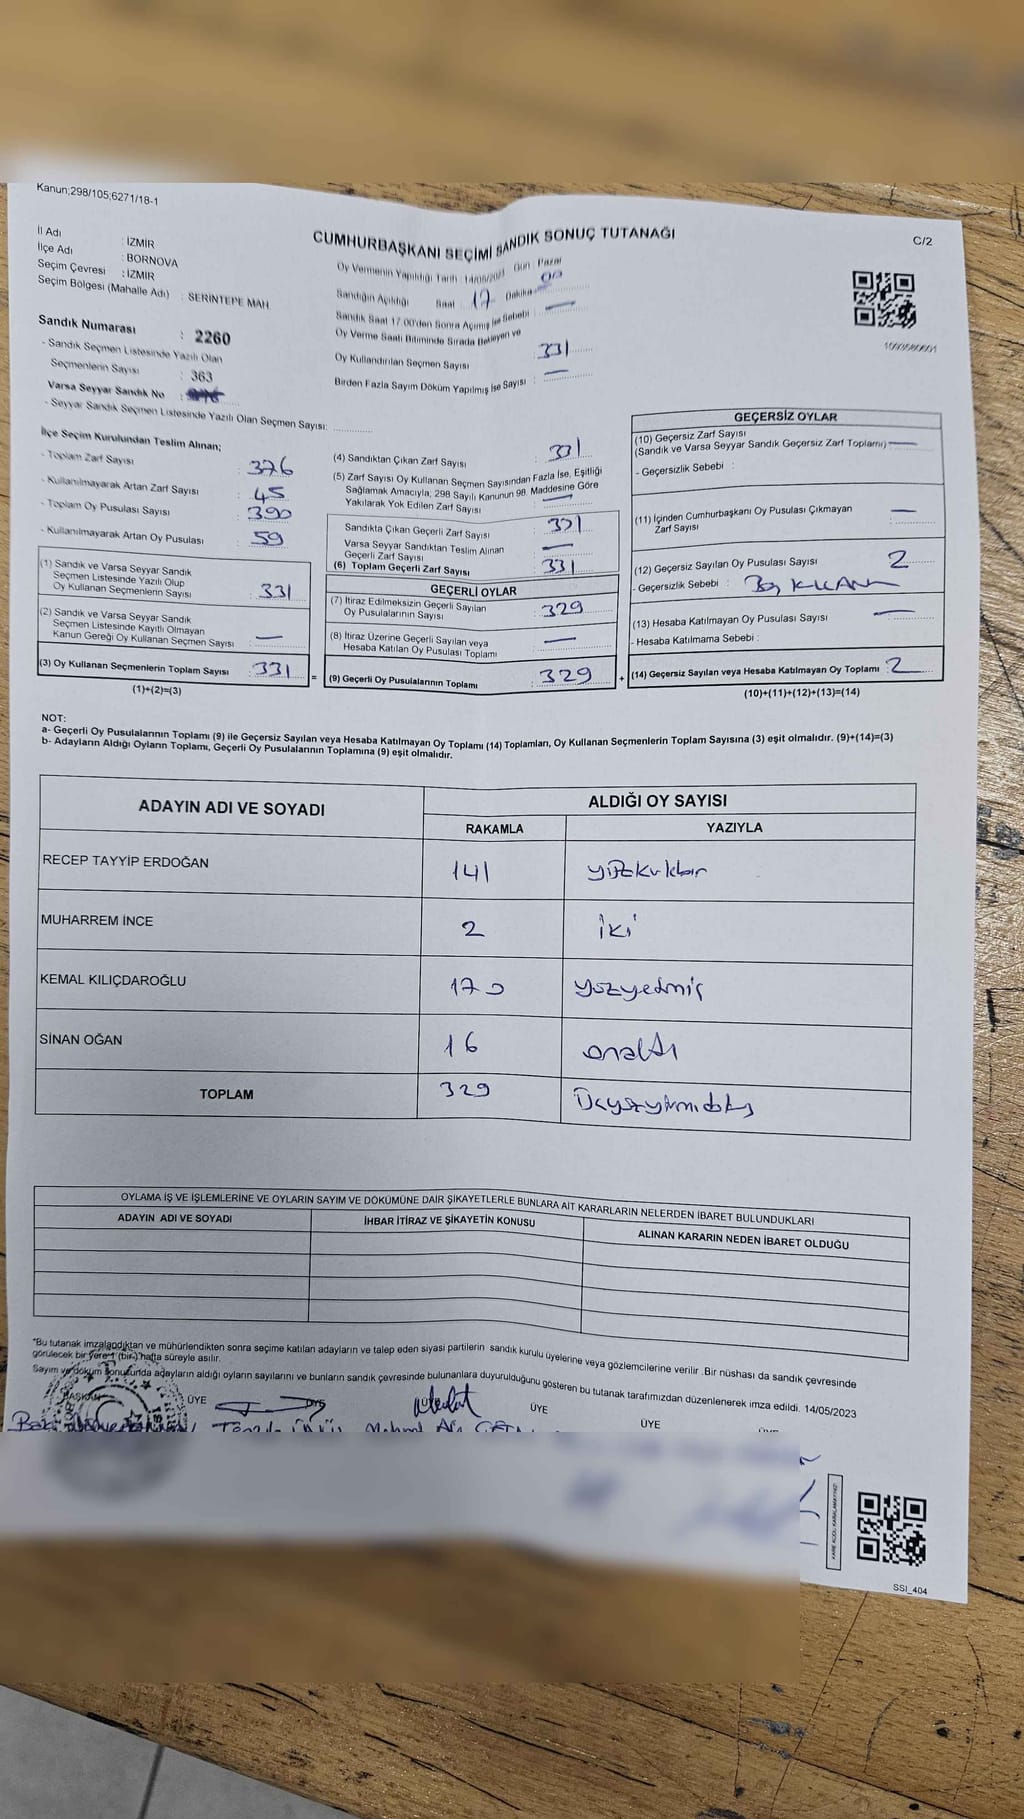 Kanun;298/105;6271/18-1
C/2
CUMHURBAŞKANI SEÇİMİ SANDIK SONUÇ TUTANAĞI
İl Adı : İZMİR
İlçe Adı : BORNOVA
Seçim Çevresi : İZMİR
Seçim Bölgesi (Mahalle Adı) : SERİNTEPE MAH
Sandık Numarası : 2260
- Sandık Seçmen Listesinde Yazılı Olan
Seçmenlerin Sayısı : 363
Varsa Seyyar Sandık No :
- Seyyar Sandık Seçmen Listesinde Yazılı Olan Seçmen Sayısı:
Oy Vermenin Yapıldığı Tarih 14/05/2023 Gün : Pazar
Sandığın Açıldığı Saat 17 Dakika 00
Sandık Saat 17.00'den Sonra Açımış İse Sebebi : —
Oy Verme Saati Bitiminde Sırada Bekleyen ve
Oy Kullandırılan Seçmen Sayısı : 331
Birden Fazla Sayım Döküm Yapılmış İse Sayısı : —
1093580601
İlçe Seçim Kurulundan Teslim Alınan;
- Toplam Zarf Sayısı : 376
- Kullanılmayarak Artan Zarf Sayısı : 45
- Toplam Oy Pusulası Sayısı : 390
- Kullanılmayarak Artan Oy Pusulası : 59
(1) Sandık ve Varsa Seyyar Sandık
Seçmen Listesinde Yazılı Olup
Oy Kullanan Seçmenlerin Sayısı : 331
(2) Sandık ve Varsa Seyyar Sandık
Seçmen Listesinde Kayıtlı Olmayan
Kanun Gereği Oy Kullanan Seçmen Sayısı : —
(3) Oy Kullanan Seçmenlerin Toplam Sayısı : 331
(1)+(2)=(3)
(4) Sandıktan Çıkan Zarf Sayısı : 331
(5) Zarf Sayısı Oy Kullanan Seçmen Sayısından Fazla İse, Eşitliği
Sağlamak Amacıyla; 298 Sayılı Kanunun 98. Maddesine Göre
Yakılarak Yok Edilen Zarf Sayısı : —
Sandıkta Çıkan Geçerli Zarf Sayısı : 331
Varsa Seyyar Sandıktan Teslim Alınan
Geçerli Zarf Sayısı : —
(6) Toplam Geçerli Zarf Sayısı : 331
GEÇERLİ OYLAR
(7) İtiraz Edilmeksizin Geçerli Sayılan
Oy Pusulalarının Sayısı : 329
(8) İtiraz Üzerine Geçerli Sayılan veya
Hesaba Katılan Oy Pusulası Toplamı : —
= (9) Geçerli Oy Pusulalarının Toplamı : 329
GEÇERSİZ OYLAR
(10) Geçersiz Zarf Sayısı
(Sandık ve Varsa Seyyar Sandık Geçersiz Zarf Toplamı) —
- Geçersizlik Sebebi :
(11) İçinden Cumhurbaşkanı Oy Pusulası Çıkmayan
Zarf Sayısı —
(12) Geçersiz Sayılan Oy Pusulası Sayısı 2
- Geçersizlik Sebebi :
(13) Hesaba Katılmayan Oy Pusulası Sayısı —
- Hesaba Katılmama Sebebi :
+ (14) Geçersiz Sayılan veya Hesaba Katılmayan Oy Toplamı : 2
(10)+(11)+(12)+(13)=(14)
NOT:
a- Geçerli Oy Pusulalarının Toplamı (9) ile Geçersiz Sayılan veya Hesaba Katılmayan Oy Toplamı (14) Toplamları, Oy Kullanan Seçmenlerin Toplam Sayısına (3) eşit olmalıdır. (9)+(14)=(3)
b- Adayların Aldığı Oyların Toplamı, Geçerli Oy Pusulalarının Toplamına (9) eşit olmalıdır.
ADAYIN ADI VE SOYADI
ALDIĞI OY SAYISI
RAKAMLA YAZIYLA
RECEP TAYYİP ERDOĞAN 141 yüzkırkbir
MUHARREM İNCE 2 iki
KEMAL KILIÇDAROĞLU 170 yüzyetmiş
SİNAN OĞAN 16 onaltı
TOPLAM 329 Üçyüzyirmidokuz
OYLAMA İŞ VE İŞLEMLERİNE VE OYLARIN SAYIM VE DÖKÜMÜNE DAİR ŞİKAYETLERLE BUNLARA AİT KARARLARIN NELERDEN İBARET BULUNDUKLARI
ADAYIN ADI VE SOYADI İHBAR İTİRAZ VE ŞİKAYETİN KONUSU ALINAN KARARIN NEDEN İBARET OLDUĞU
*Bu tutanak imzalandıktan ve mühürlendikten sonra seçime katılan adayların ve talep eden siyasi partilerin sandık kurulu üyelerine veya gözlemcilerine verilir .Bir nüshası da sandık çevresinde
görülecek bir yere 1 (bir ) hafta süreyle asılır.
Sayım ve döküm sonucunda adayların aldığı oyların sayılarını ve bunların sandık çevresinde bulunanlara duyurulduğunu gösteren bu tutanak tarafımızdan düzenlenerek imza edildi. 14/05/2023
BAŞKAN ÜYE ÜYE ÜYE ÜYE ÜYE
Mehmet Ali
SSI_404